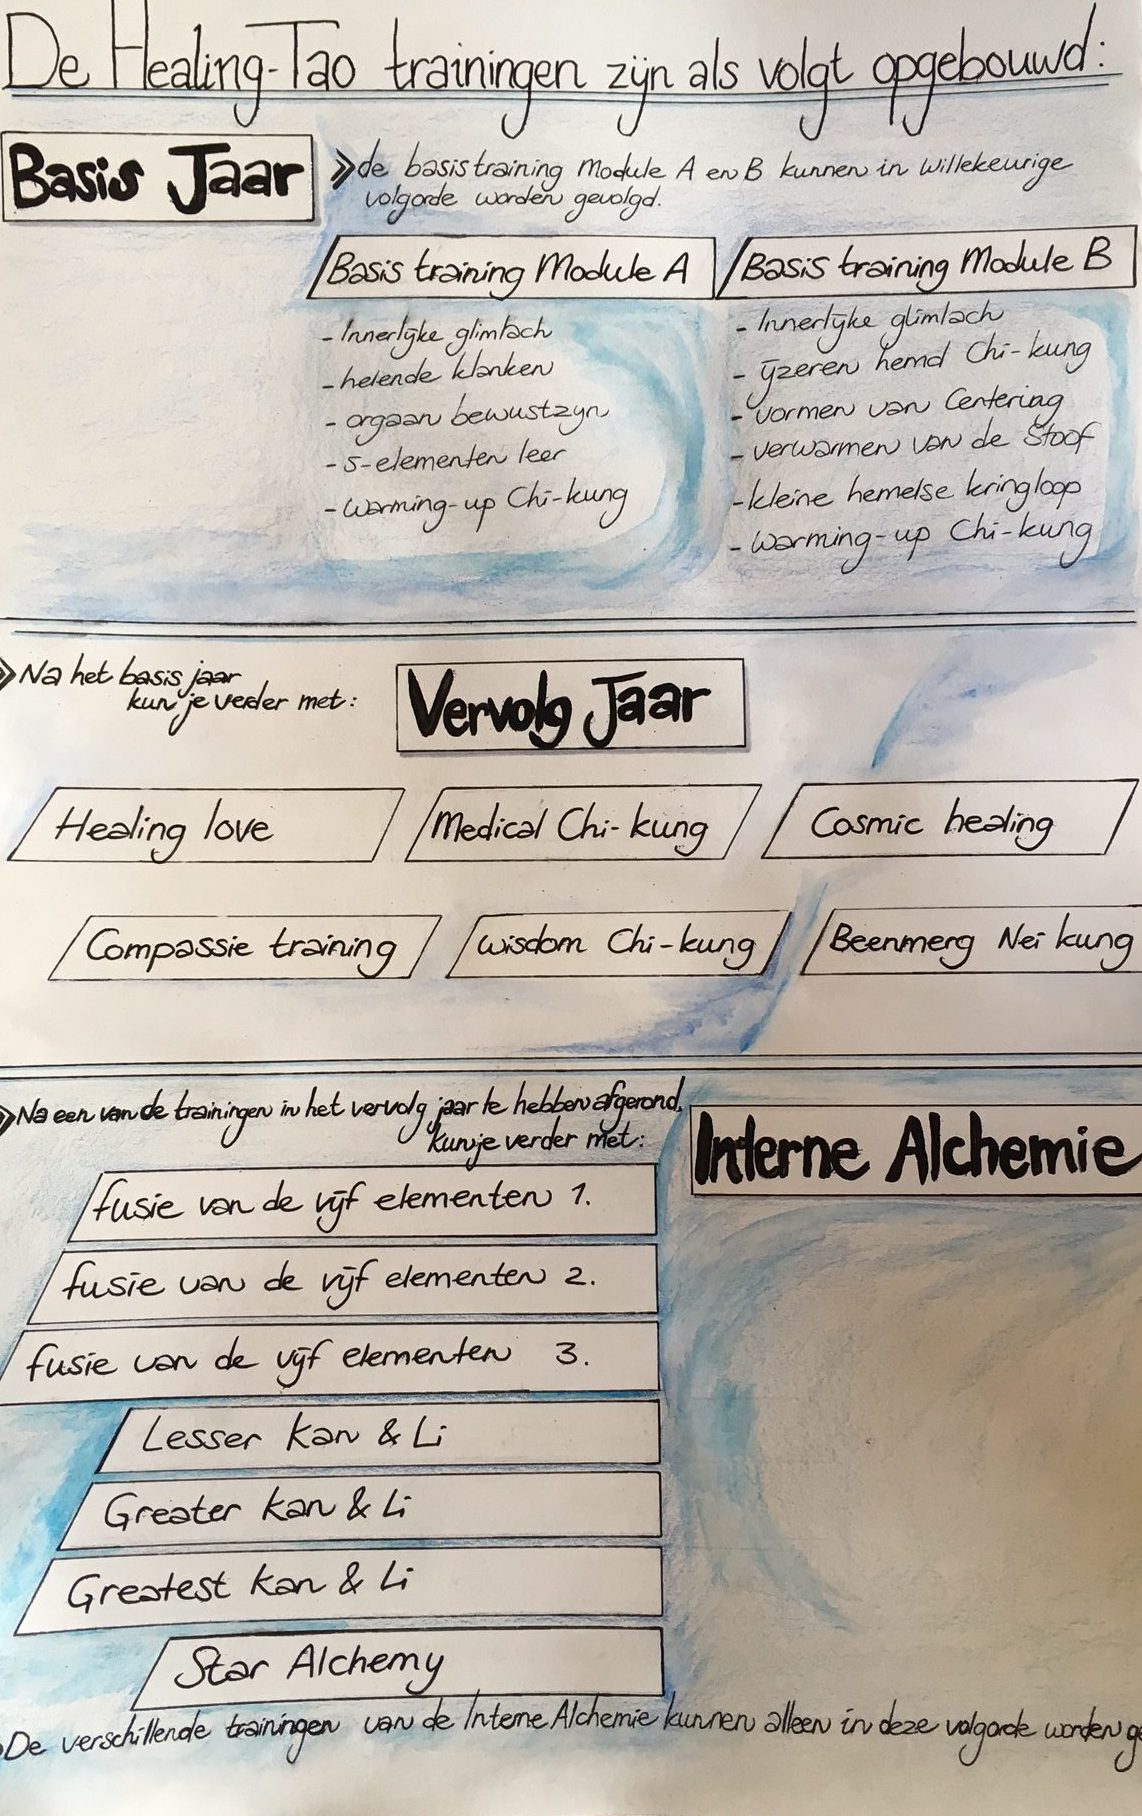 De Healing-Tao trainingen zijn als volgt opgebouwd:
Basis Jaar
» de basistraining Module A en B kunnen in willekeurige
volgorde worden gevolgd.
Basis training Module A
- Innerlijke glimlach
- helende klanken
- orgaan bewustzijn
- 5-elementen leer
- Warming-up Chi-kung
Basis training Module B
- Innerlijke glimlach
- ijzeren hemd Chi-kung
- vormen van Centering
- verwarmen van de Stoof
- kleine hemelse kringloop
- Warming-up Chi-kung
» Na het basis jaar
kun je verder met:
Vervolg Jaar
Healing love
Medical Chi-kung
Cosmic healing
Compassie training
wisdom Chi-kung
Beenmerg Nei kung
» Na een van de trainingen in het vervolg jaar te hebben afgerond,
kun je verder met:
Interne Alchemie
fusie van de vijf elementen 1.
fusie van de vijf elementen 2.
fusie van de vijf elementen 3.
Lesser Kan & Li
Greater Kan & Li
Greatest Kan & Li
Star Alchemy
De verschillende trainingen van de Interne Alchemie kunnen alleen in deze volgorde worden ge